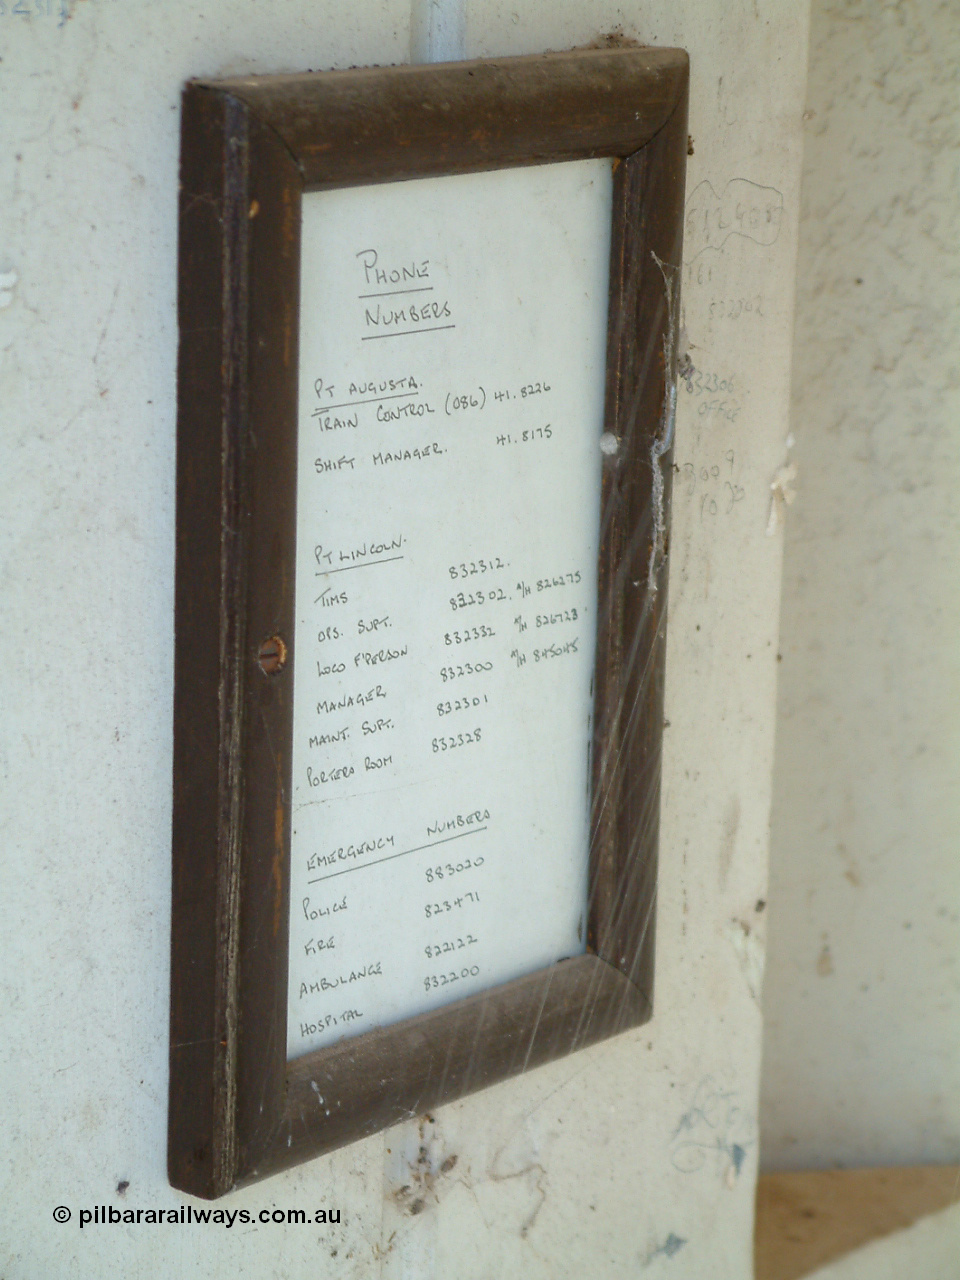 PHONE
NUMBERS
PT AUGUSTA.
TRAIN CONTROL (086) 41.8226
SHIFT MANAGER. 41.8175
PT LINCOLN.
TIMS 832312.
OPS. SUPT. 832302. A/H 826275
LOCO F'PERSON 832332 A/H 826723
MANAGER 832300 A/H 845045
MAINT. SUPT. 832301
PORTERS ROOM 832328
EMERGENCY NUMBERS
POLICE 883020
FIRE 823471
AMBULANCE 822122
HOSPITAL 832200
832306
OFFICE
© pilbararailways.com.au